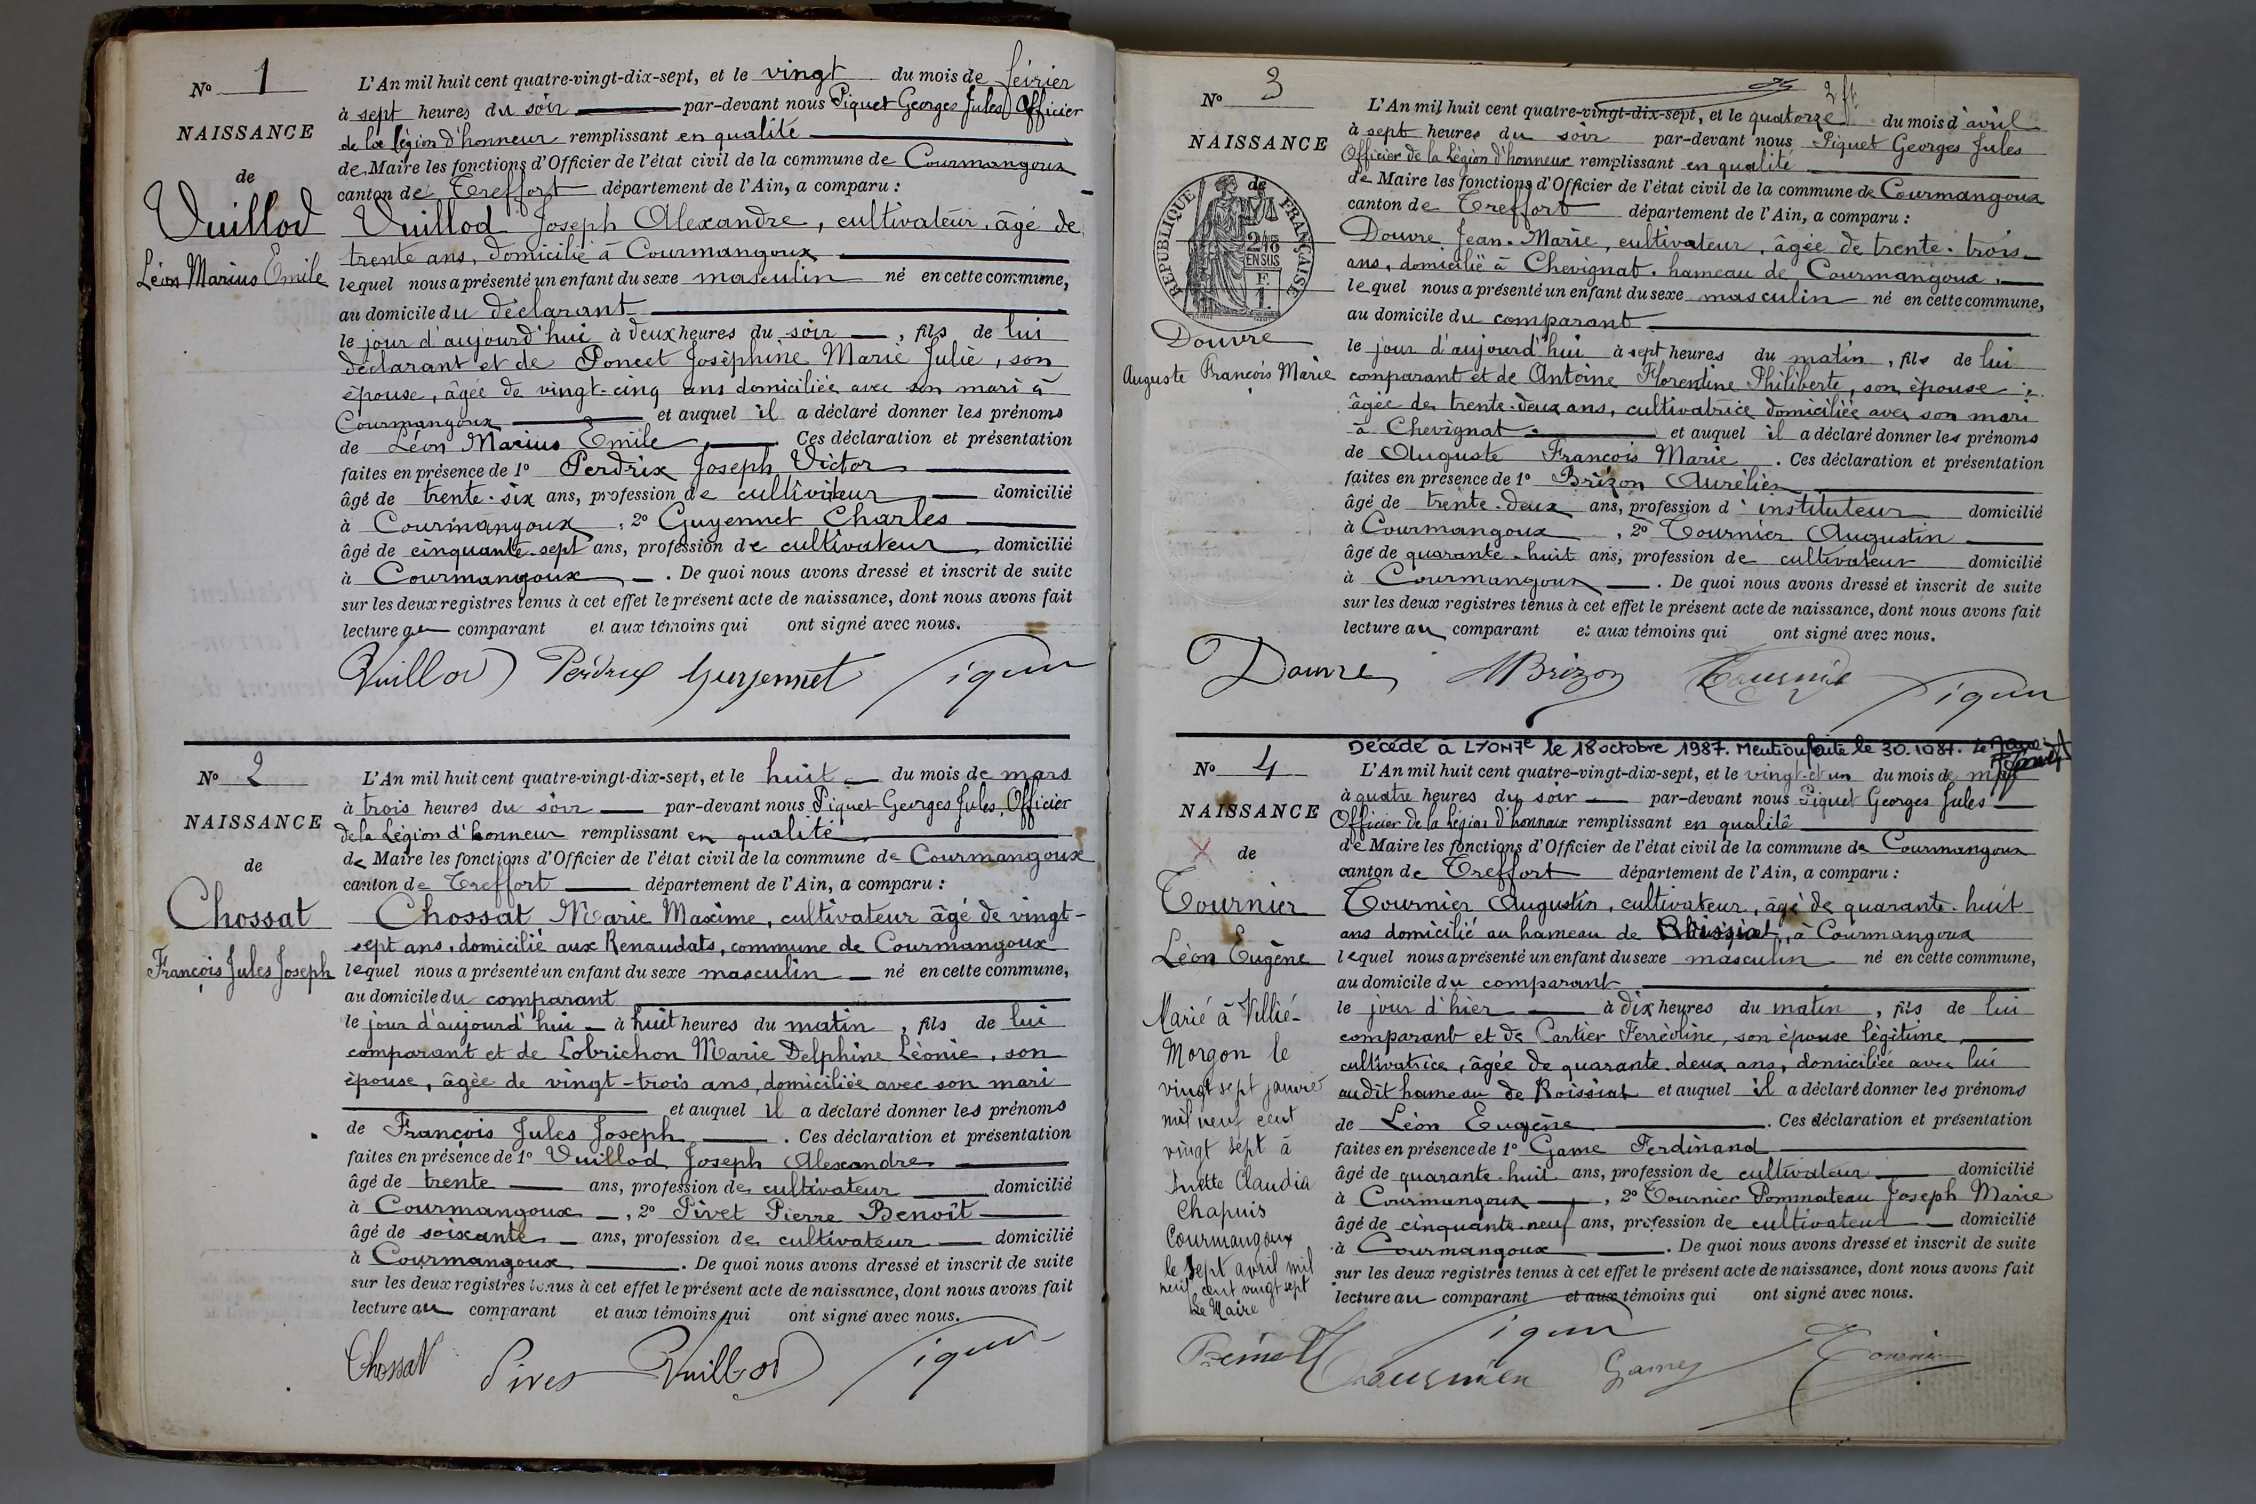 No 1
NAISSANCE
de
Vuillod
Léon Marius Emile
L'An mil huit cent quatre-vingt-dix-sept, et le vingt du mois de février
à sept heures du soir par-devant nous Piquet Georges Jules Officier
de la légion d'honneur remplissant en qualité
de Maire les fonctions d'Officier de l'état civil de la commune de Courmangoux
canton de Treffort département de l'Ain, a comparu :
Vuillod Joseph Alexandre, cultivateur, âgé de
trente ans, domicilié à Courmangoux
lequel nous a présenté un enfant du sexe masculin né en cette commune,
au domicile du déclarant
le jour d'aujourd'hui à deux heures du soir, fils de lui
déclarant et de Poncet Joséphine Marie Julie, son
épouse, âgée de vingt-cinq ans domiciliée avec son mari à
Courmangoux et auquel il a déclaré donner les prénoms
de Léon Marius Emile. Ces déclaration et présentation
faites en présence de 1o Perdrix Joseph Victor
âgé de trente-six ans, profession de cultivateur domicilié
à Courmangoux, 2o Guyennet Charles
âgé de cinquante-sept ans, profession de cultivateur domicilié
à Courmangoux. De quoi nous avons dressé et inscrit de suite
sur les deux registres tenus à cet effet le présent acte de naissance, dont nous avons fait
lecture au comparant et aux témoins qui ont signé avec nous.
Vuillod Perdrix Guyennet Piquet
No 2
NAISSANCE
de
Chossat
François Jules Joseph
L'An mil huit cent quatre-vingt-dix-sept, et le huit du mois de mars
à trois heures du soir par-devant nous Piquet Georges Jules, Officier
de la Légion d'honneur remplissant en qualité
de Maire les fonctions d'Officier de l'état civil de la commune de Courmangoux
canton de Treffort département de l'Ain, a comparu :
Chossat Marie Maxime, cultivateur âgé de vingt-
sept ans, domicilié aux Renaudats, commune de Courmangoux
lequel nous a présenté un enfant du sexe masculin né en cette commune,
au domicile du comparant
le jour d'aujourd'hui à huit heures du matin, fils de lui
comparant et de Lobrichon Marie Delphine Léonie, son
épouse, âgée de vingt-trois ans, domiciliée avec son mari
et auquel il a déclaré donner les prénoms
de François Jules Joseph. Ces déclaration et présentation
faites en présence de 1o Vuillod Joseph Alexandre
âgé de trente ans, profession de cultivateur domicilié
à Courmangoux, 2o Pivet Pierre Benoît
âgé de soixante ans, profession de cultivateur domicilié
à Courmangoux. De quoi nous avons dressé et inscrit de suite
sur les deux registres tenus à cet effet le présent acte de naissance, dont nous avons fait
lecture au comparant et aux témoins qui ont signé avec nous.
Chossat Pivet Vuillod Piquet
No 3
NAISSANCE
de
RÉPUBLIQUE FRANÇAISE
2/10
EN SUS
F.
1.
Douvre
Auguste François Marie
L'An mil huit cent quatre-vingt-dix-sept, et le quatorze du mois d'avril
à sept heures du soir par-devant nous Piquet Georges Jules
Officier de la Légion d'honneur remplissant en qualité
de Maire les fonctions d'Officier de l'état civil de la commune de Courmangoux
canton de Treffort département de l'Ain, a comparu :
Douvre Jean-Marie, cultivateur, âgée de trente-trois
ans, domicilié à Chevignat, hameau de Courmangoux,
lequel nous a présenté un enfant du sexe masculin né en cette commune,
au domicile du comparant
le jour d'aujourd'hui à sept heures du matin, fils de lui
comparant et de Antoine Florentine Philiberte, son épouse
âgée de trente-deux ans, cultivatrice domiciliée avec son mari
à Chevignat. et auquel il a déclaré donner les prénoms
de Auguste François Marie. Ces déclaration et présentation
faites en présence de 1o Brizon Aurélien
âgé de trente-deux ans, profession d'instituteur domicilié
à Courmangoux, 2o Tournier Augustin
âgé de quarante-huit ans, profession de cultivateur domicilié
à Courmangoux. De quoi nous avons dressé et inscrit de suite
sur les deux registres tenus à cet effet le présent acte de naissance, dont nous avons fait
lecture au comparant et aux témoins qui ont signé avec nous.
Douvre ABrizon Tournier Piquet
Décédé à LYON 7e le 18 octobre 1987. Mention faite le 30.10 87.
No 4
NAISSANCE
de
Tournier
Léon Eugène
Marié à Villié-
Morgon le
vingt sept janvier
mil neuf cent
vingt sept à
Claudia
Chapuis
Courmangoux
le sept avril mil
neuf cent vingt sept
Le Maire
L'An mil huit cent quatre-vingt-dix-sept, et le vingt-et un du mois de mai
à quatre heures du soir par-devant nous Piquet Georges Jules
Officier de la Légion d'honneur remplissant en qualité
de Maire les fonctions d'Officier de l'état civil de la commune de Courmangoux
canton de Treffort département de l'Ain, a comparu :
Tournier Augustin, cultivateur, âgé de quarante-huit
ans domicilié au hameau de Roissiat, à Courmangoux
lequel nous a présenté un enfant du sexe masculin né en cette commune,
au domicile du comparant
le jour d'hier à dix heures du matin, fils de lui
comparant et de Cartier Ferréoline, son épouse légitime
cultivatrice, âgée de quarante deux ans, domiciliée avec lui
audit hameau de Roissiat et auquel il a déclaré donner les prénoms
de Léon Eugène. Ces déclaration et présentation
faites en présence de 1o Game Ferdinand
âgé de quarante-huit ans, profession de cultivateur domicilié
à Courmangoux, 2o Tournier Pommateau Joseph Marie
âgé de cinquante-neuf ans, profession de cultivateur domicilié
à Courmangoux. De quoi nous avons dressé et inscrit de suite
sur les deux registres tenus à cet effet le présent acte de naissance, dont nous avons fait
lecture au comparant et aux témoins qui ont signé avec nous.
Piquet
Tournier Game Tournier